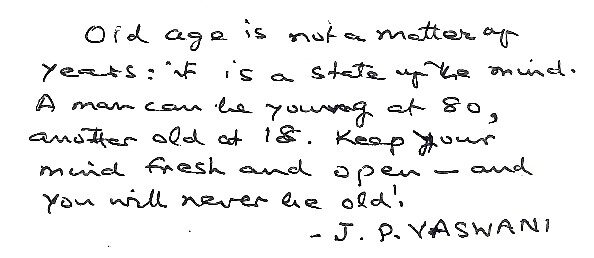 Old age is not a matter of
years: it is a state of the mind.
A man can be young at 80,
another old at 18. Keep your
mind fresh and open – and
you will never be old!
- J. P. VASWANI